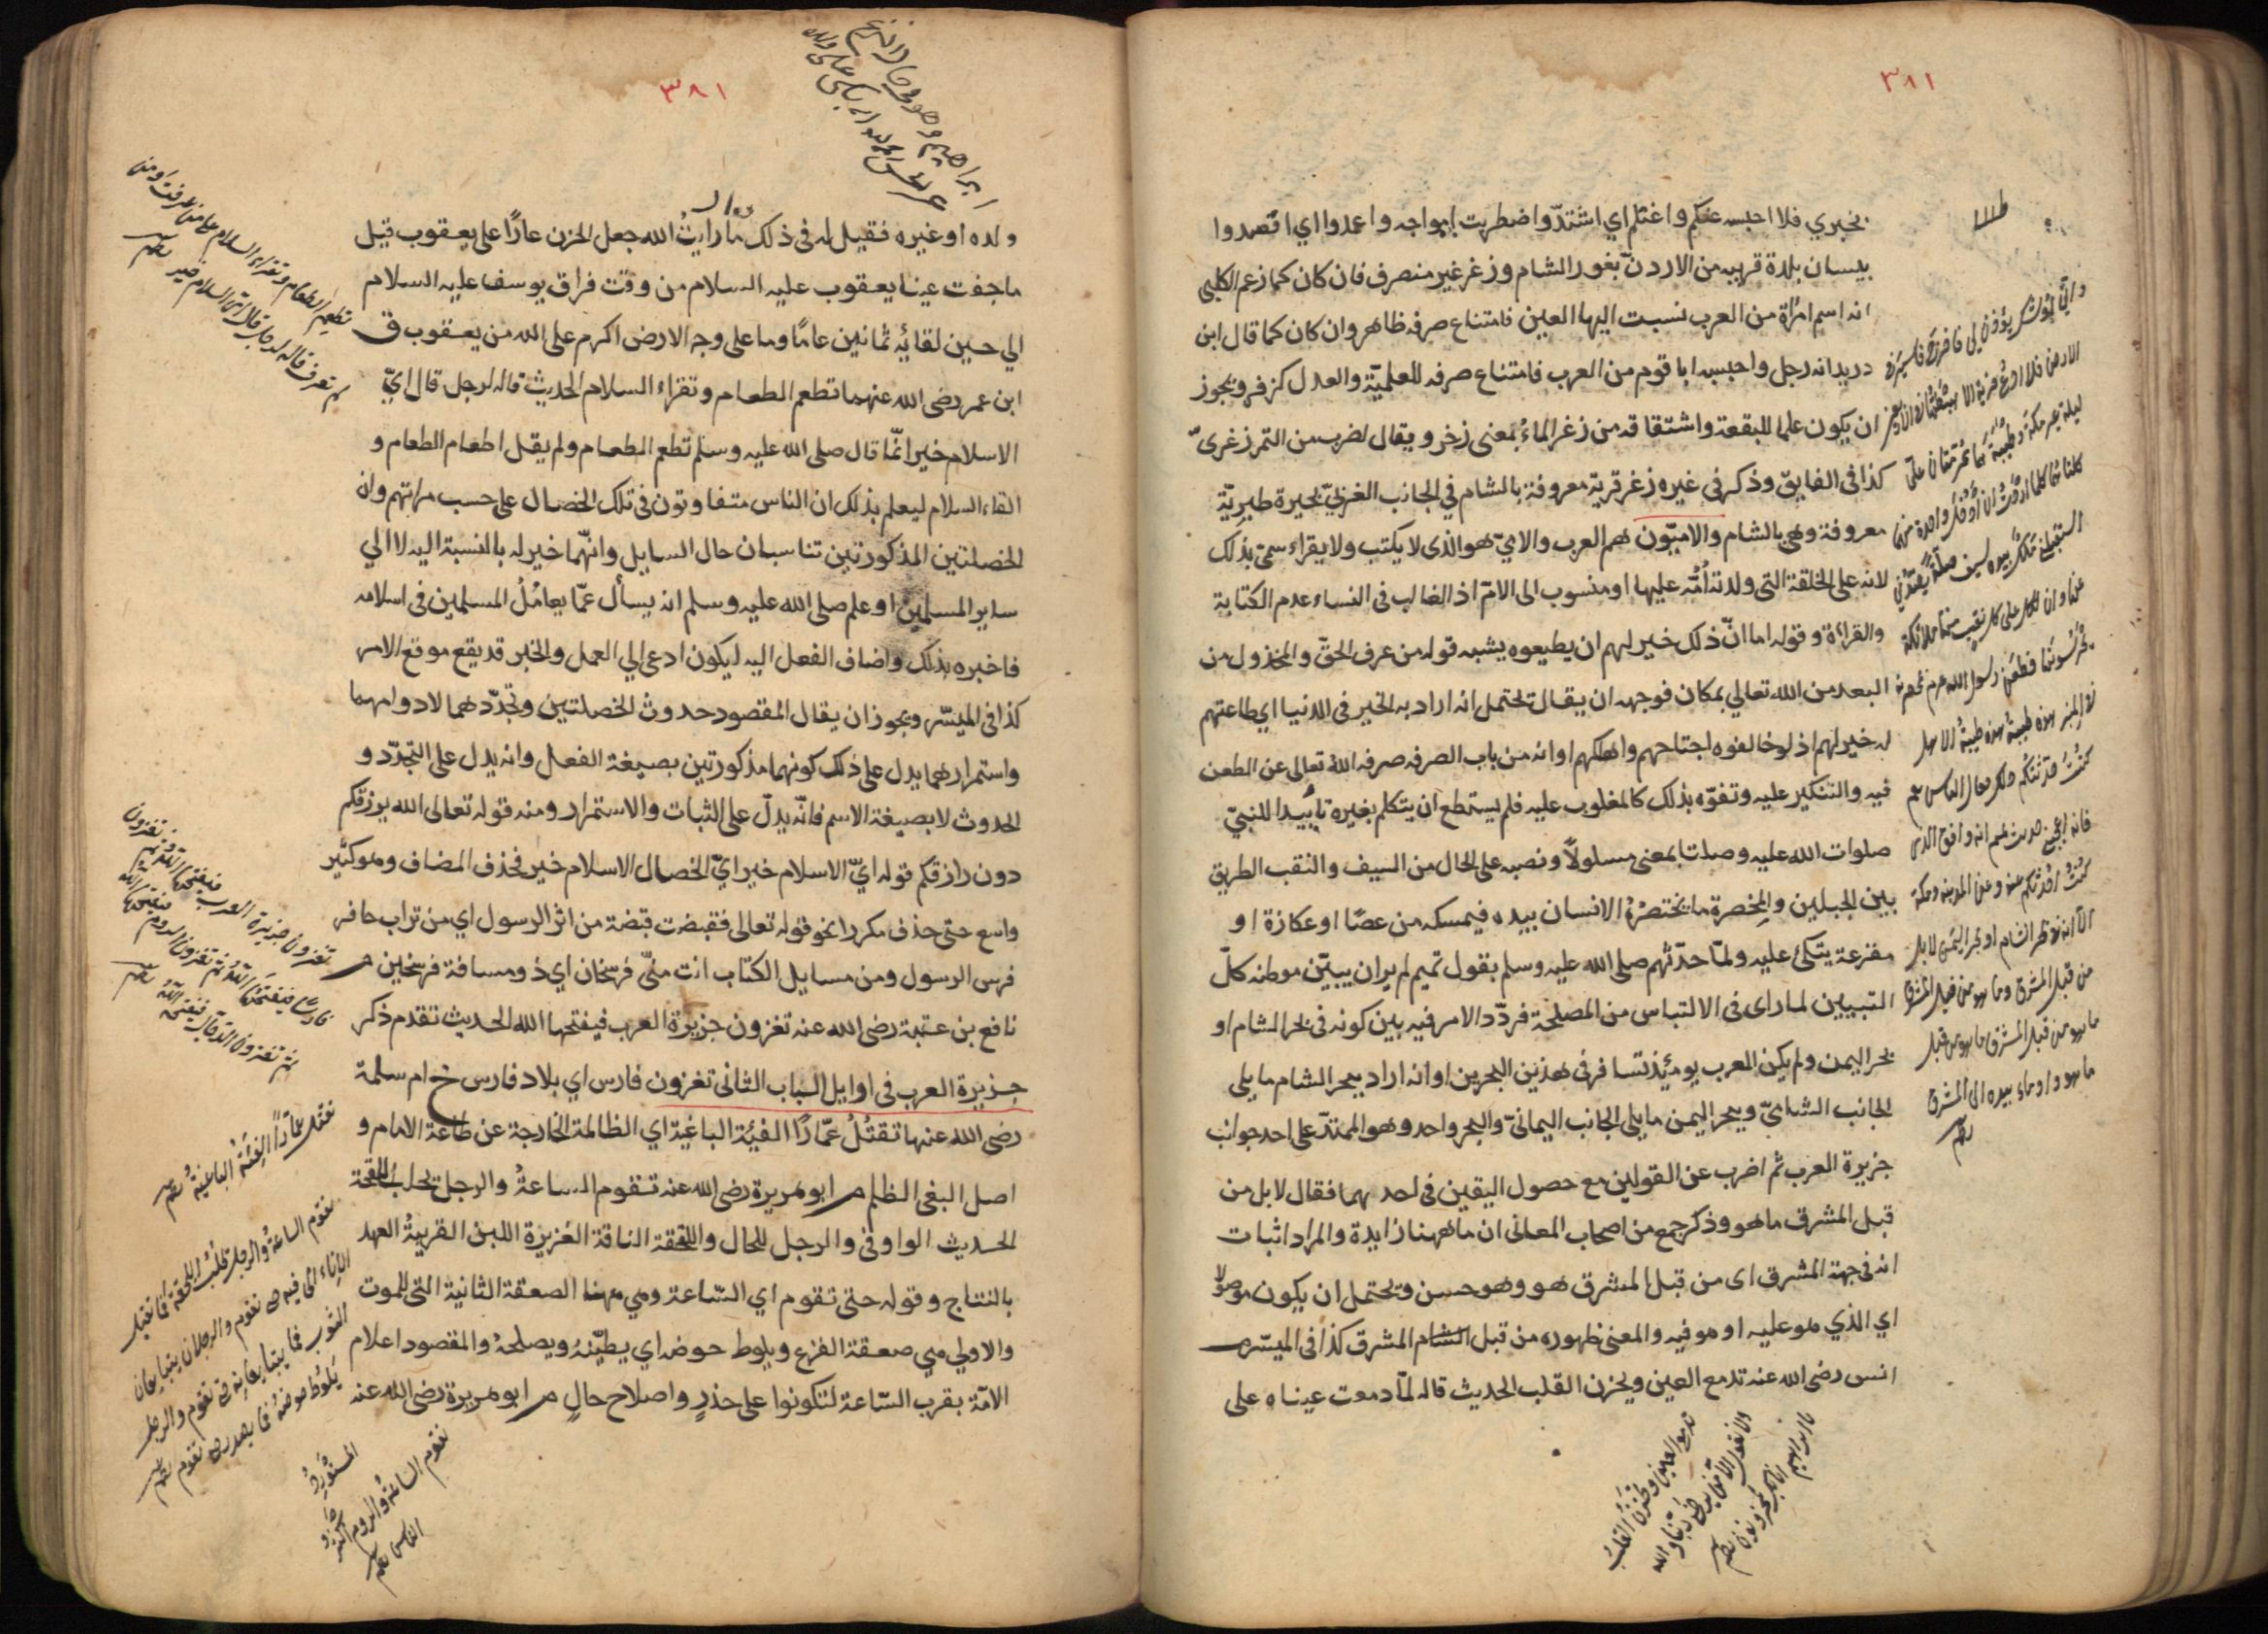 ٣٨١
بخبري فلا احبسه عنكم واغتلم اي اشتدّ واضطربت امواجه واعمدوا اي اقصدوا
بيسان بلدة قريبه من الاردنّ بغور الشام وزغر غير منصرف فان كان كما زعم الكلبى
انه اسم امرأة من العرب نسبت اليها العين فامتناع صرفه ظاهر وان كان كما قال ابن
دريد انه رجل واحسبه ابا قوم من العرب فامتناع صرفه للعلميّة والعدل كزفر ويجوز
ان يكون علما للبقعة واشتقاقه من زغر الماءُ بمعنى زخر ويقال لضرب من التمر زغرىّ
كذا فى الفايق وذكر في غيره زغر قرية معروفة بالشام في الجانب الغربيّ بحيرة طبريّة
معروفة وهى بالشام والاميّون هم العرب والاميّ هو الذى لا يكتب ولا يقراء سمى بذلك
لانه على الخلقة التى ولدته اُمّه عليها او منسوب الى الامّ اذ الغالب فى النساء عدم الكتابة
والقراءة وقوله اما انّ ذلك خير لهم ان يطيعوه يشبه قوله من عرف الحقّ والمخذول من
البعد من الله تعالي بمكان فوجهه ان يقال يحتمل انه اراد به الخير فى الدنيا اي طاعتهم
له خير لهم اذ لو خالفوه اجتاحهم واهلكهم او انه من باب الصرفه صرفه الله تعالى عن الطعن
فيه والتنكير عليه وتفوّه بذلك كالمغلوب عليه فلم يستطع ان يتكلم بغيره تاييدا للنبيّ
صلوات الله عليه وصلتا بمعنى مسلولاً ونصبه على الحال من السيف والنقب الطريق
بين الجبلين والمِخصرة ما يختصرُهُ الانسان بيده فيمسكه من عصًا او عكازة او
مقرعة يتكئ عليه ولمّا حدّثهم صلى الله عليه وسلم بقول تميم لم ير ان يبيّن موطنه كلّ
التبيين لما راى فى الالتباس من المصلحة فردّد الامر فيه بين كونه فى بحر الشام او
بحر اليمن ولم يكن العرب يومئذ تسافر فى هذين البحرين او انه اراد ببحر الشام ما يلى
الجانب الشاميّ وببحر اليمن ما يلى الجانب اليمانيّ والبحر واحد وهو الممتدّ على احد جوانب
جزيرة العرب ثم اضرب عن القولين مع حصول اليقين فى احدهما فقال لا بل من
قبل المشرق ما هو وذكر جمع من اصحاب المعانى ان ما ههنا زايدة والمراد اثبات
انه فى جهة المشرق اى من قبل المشرق هو وهو حسن ويحتمل ان يكون موصولا
اي الذي هو عليه او هو فيه والمعنى ظهوره من قبل الشام المشرق كذا فى الميسّر
انس رضى الله عنه تدمع العين ويحزن القلب الحديث قاله لمّا دمعت عيناه على
تدمع العين ويحزن القلب
٣٨١
ولده او غيره فقيل له فى ذلك ما رايتُ الله جعل الحزن عارًا على يعقوب قيل
ما جفت عينا يعقوب عليه السلام من وقت فراق يوسف عليه السلام
الي حين لقائه ثمانين عامًا وما على وجه الارض اكرم على الله من يعقوب ق
ابن عمر رضى الله عنهما تطعم الطعام وتقراء السلام الحديث قاله لرجل قال ايّ
الاسلام خير انّما قال صلى الله عليه وسلم تطعم الطعام ولم يقل اطعام الطعام و
القاء السلام ليعلم بذلك ان الناس متفاوتون فى تلك الخصال على حسب مراتبهم وان
الخصلتين المذكورتين تناسبان حال السايل وانّهما خير له بالنسبة اليه لا الي
ساير المسلمين او علم صلى الله عليه وسلم انه يسأل عمّا يعامُلُ المسلمين فى اسلامه
فاخبره بذلك واضاف الفعل اليه ليكون ادعى الي العمل والخبر قد يقع موقع الامر
كذا فى الميسّر ويجوز ان يقال المقصود حدوث الخصلتين وتجدّدهما لا دوامهما
واستمرارهما يدل على ذلك كونهما مذكورتين بصيغة الفعل وانه يدل على التجدّد و
الحدوث لا بصيغة الاسم فانّه يدلّ على الثبات والاستمرار ومنه قوله تعالى الله يرزقكم
دون رازقكم قوله ايّ الاسلام خير ايّ الخصال الاسلام خير فحذف المضاف وهو كثير
واسع حتى حذف مكررا نحو قوله تعالى فقبضت قبضة من اثر الرسول اي من تراب حافر
فرس الرسول ومن مسايل الكتاب انت منّي فرسخان اي ذو مسافة فرسخين م
نافع بن عتبة رضى الله عنه تغزون جزيرة العرب فيفتحها الله الحديث تقدم ذكر
جزيرة العرب فى اوايل الباب الثانى تغزون فارس اي بلاد فارس خ ام سلمة
رضى الله عنها تقتُلُ عمّارًا الفئة الباغية اي الظالمة الخارجة عن طاعة الامام و
اصل البغى الظلم م ابو هريرة رضى الله عنه تقوم الساعةُ والرجل يحلب اللقحة
الحديث الواو فى والرجل للحال واللقحة الناقة الغزيرة اللبن القريبةُ العهد
بالنتاج وقوله حتى تقوم اي السّاعة وهي ههنا الصعقة الثانية التى للموت
والاولي هي صعقة الفزع ويلوط حوضه اي يطيّنهُ ويصلحهُ والمقصود اعلام
الامّة بقرب السّاعة لتكونوا على حذرٍ واصلاح حالٍ م ابو هريرة رضى الله عنه
تقتل عمّاراً الفِئَة الباغيةُ
تقوم الساعةُ والروم اكثر
الناس